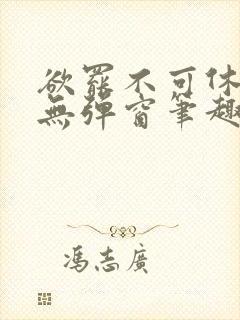 欲罷不可休
無彈窗筆趣
馮志廣